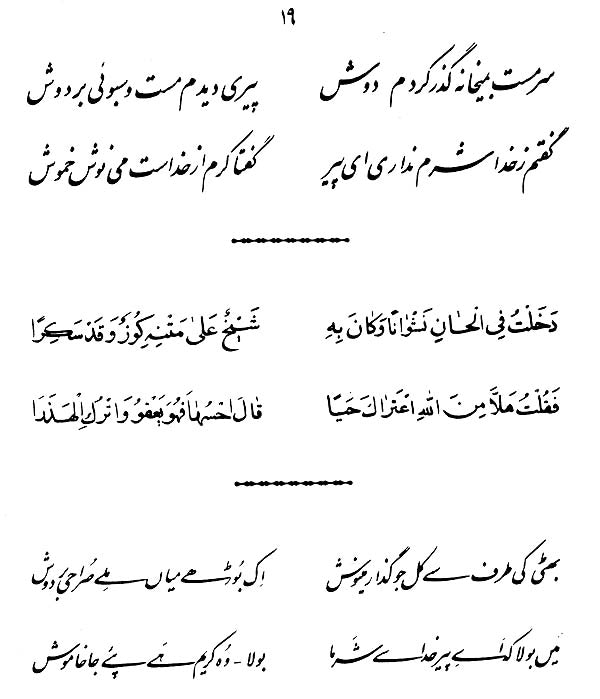 ۱۹
سرمست بمیخانه گذر کردم دوش پیری دیدم مست و سبوئی بر دوش
گفتم ز خدا شرم نداری ای پیر گفتا کرم از خداست می نوش خموش
دَخَلْتُ فِي الْحَانِ نَشْوَانًا وَكَانَ بِهِ شَيْخٌ عَلىٰ مَتْنِهِ كُوزٌ وَقَدْ سَكِرَا
فَقُلْتُ هَلَّا مِنَ اللهِ اعْتَرَاكَ حَيًا قَالَ احْسُهَا فَهُوَ يَعْفُوْ وَاتْرُكِ الْهَذَرَا
بھٹی کی طرف سے کل جو گذار مینوش اِک بُوڑھے میاں ملے صُراحی بردوش
مَیں بولا کہ اَے پیر خدا سے شرما بولا - وُہ کریم ہَے پِئے جا خاموش